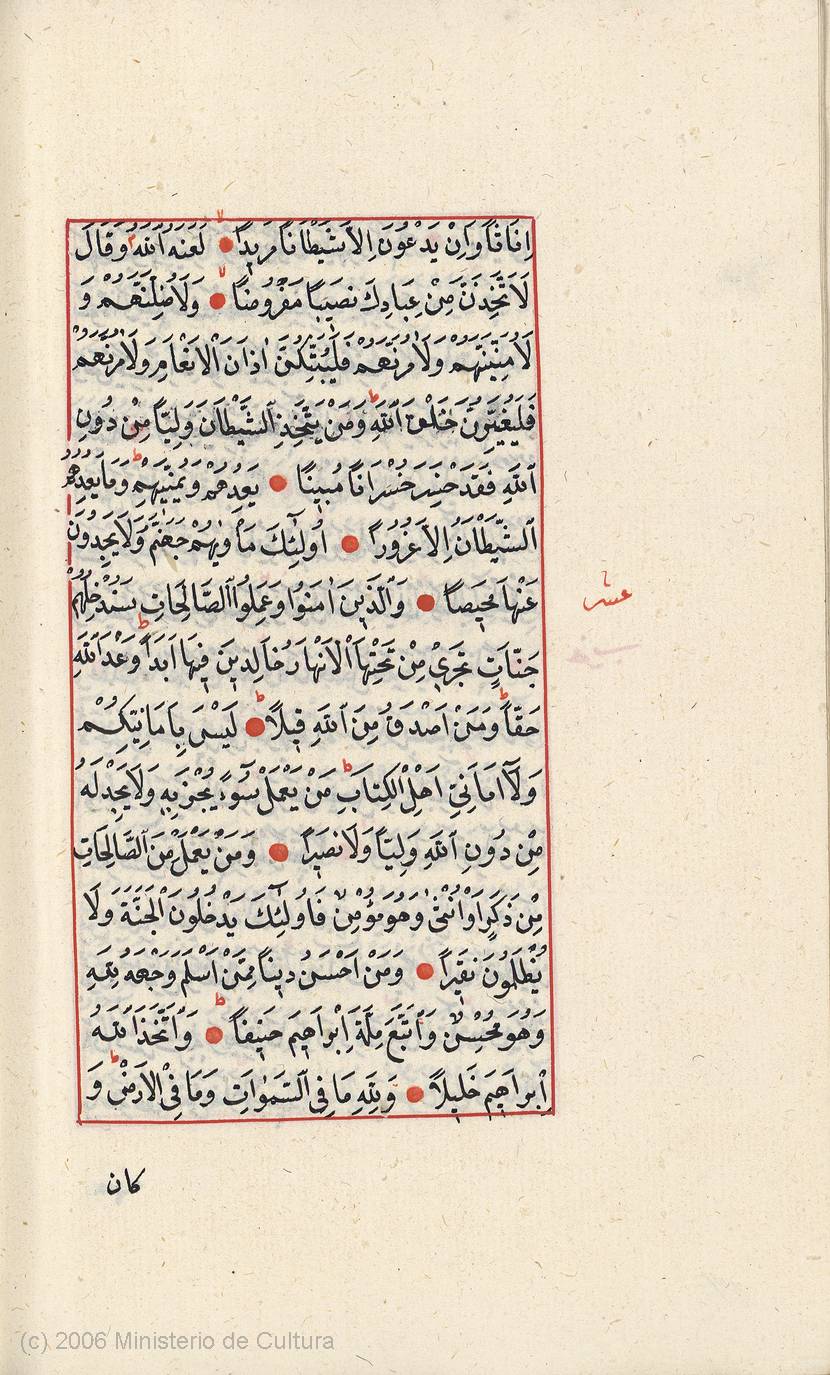 اِنَاثًا وَاِنْ يَدْعُونَ اِلَّا شَيْطَانًا مَرِيدًا لَعَنَهُ اللّٰهُ وَقَالَ
لَاَتَّخِذَنَّ مِنْ عِبَادِكَ نَصِيبًا مَفْرُوضًا وَلَاُضِلَّنَّهُمْ وَ
لَاُمَنِّيَنَّهُمْ وَلَاٰمُرَنَّهُمْ فَلَيُبَتِّكُنَّ اٰذَانَ الْاَنْعَامِ وَلَاٰمُرَنَّهُمْ
فَلَيُغَيِّرُنَّ خَلْقَ اللّٰهِ وَمَنْ يَتَّخِذِ الشَّيْطَانَ وَلِيًّا مِنْ دُونِ
اللّٰهِ فَقَدْ خَسِرَ خُسْرَانًا مُبِينًا يَعِدُهُمْ وَيُمَنِّيهِمْ وَمَا يَعِدُهُمُ
الشَّيْطَانُ اِلَّا غُرُورًا اُولٰٓئِكَ مَاْوٰيهُمْ جَهَنَّمُ وَلَا يَجِدُونَ
عَنْهَا مَحِيصًا وَالَّذِينَ اٰمَنُوا وَعَمِلُوا الصَّالِحَاتِ سَنُدْخِلُهُمْ
جَنَّاتٍ تَجْرِي مِنْ تَحْتِهَا الْاَنْهَارُ خَالِدِينَ فِيهَا اَبَدًا وَعْدَ اللّٰهِ
حَقًّا وَمَنْ اَصْدَقُ مِنَ اللّٰهِ قِيلًا لَيْسَ بِاَمَانِيِّكُمْ
وَلَٓا اَمَانِيِّ اَهْلِ الْكِتَابِ مَنْ يَعْمَلْ سُٓوءًا يُجْزَ بِهِ وَلَا يَجِدْ لَهُ
مِنْ دُونِ اللّٰهِ وَلِيًّا وَلَا نَصِيرًا وَمَنْ يَعْمَلْ مِنَ الصَّالِحَاتِ
مِنْ ذَكَرٍ اَوْ اُنْثٰى وَهُوَ مُؤْمِنٌ فَاُولٰٓئِكَ يَدْخُلُونَ الْجَنَّةَ وَلَا
يُظْلَمُونَ نَقِيرًا وَمَنْ اَحْسَنُ دِينًا مِمَّنْ اَسْلَمَ وَجْهَهُ لِلّٰهِ
وَهُوَ مُحْسِنٌ وَاتَّبَعَ مِلَّةَ اِبْرَاهِيمَ حَنِيفًا وَاتَّخَذَ اللّٰهُ
اِبْرَاهِيمَ خَلِيلًا وَلِلّٰهِ مَا فِي السَّمٰوَاتِ وَمَا فِي الْاَرْضِ وَ
عشر
كان
(c) 2006 Ministerio de Cultura